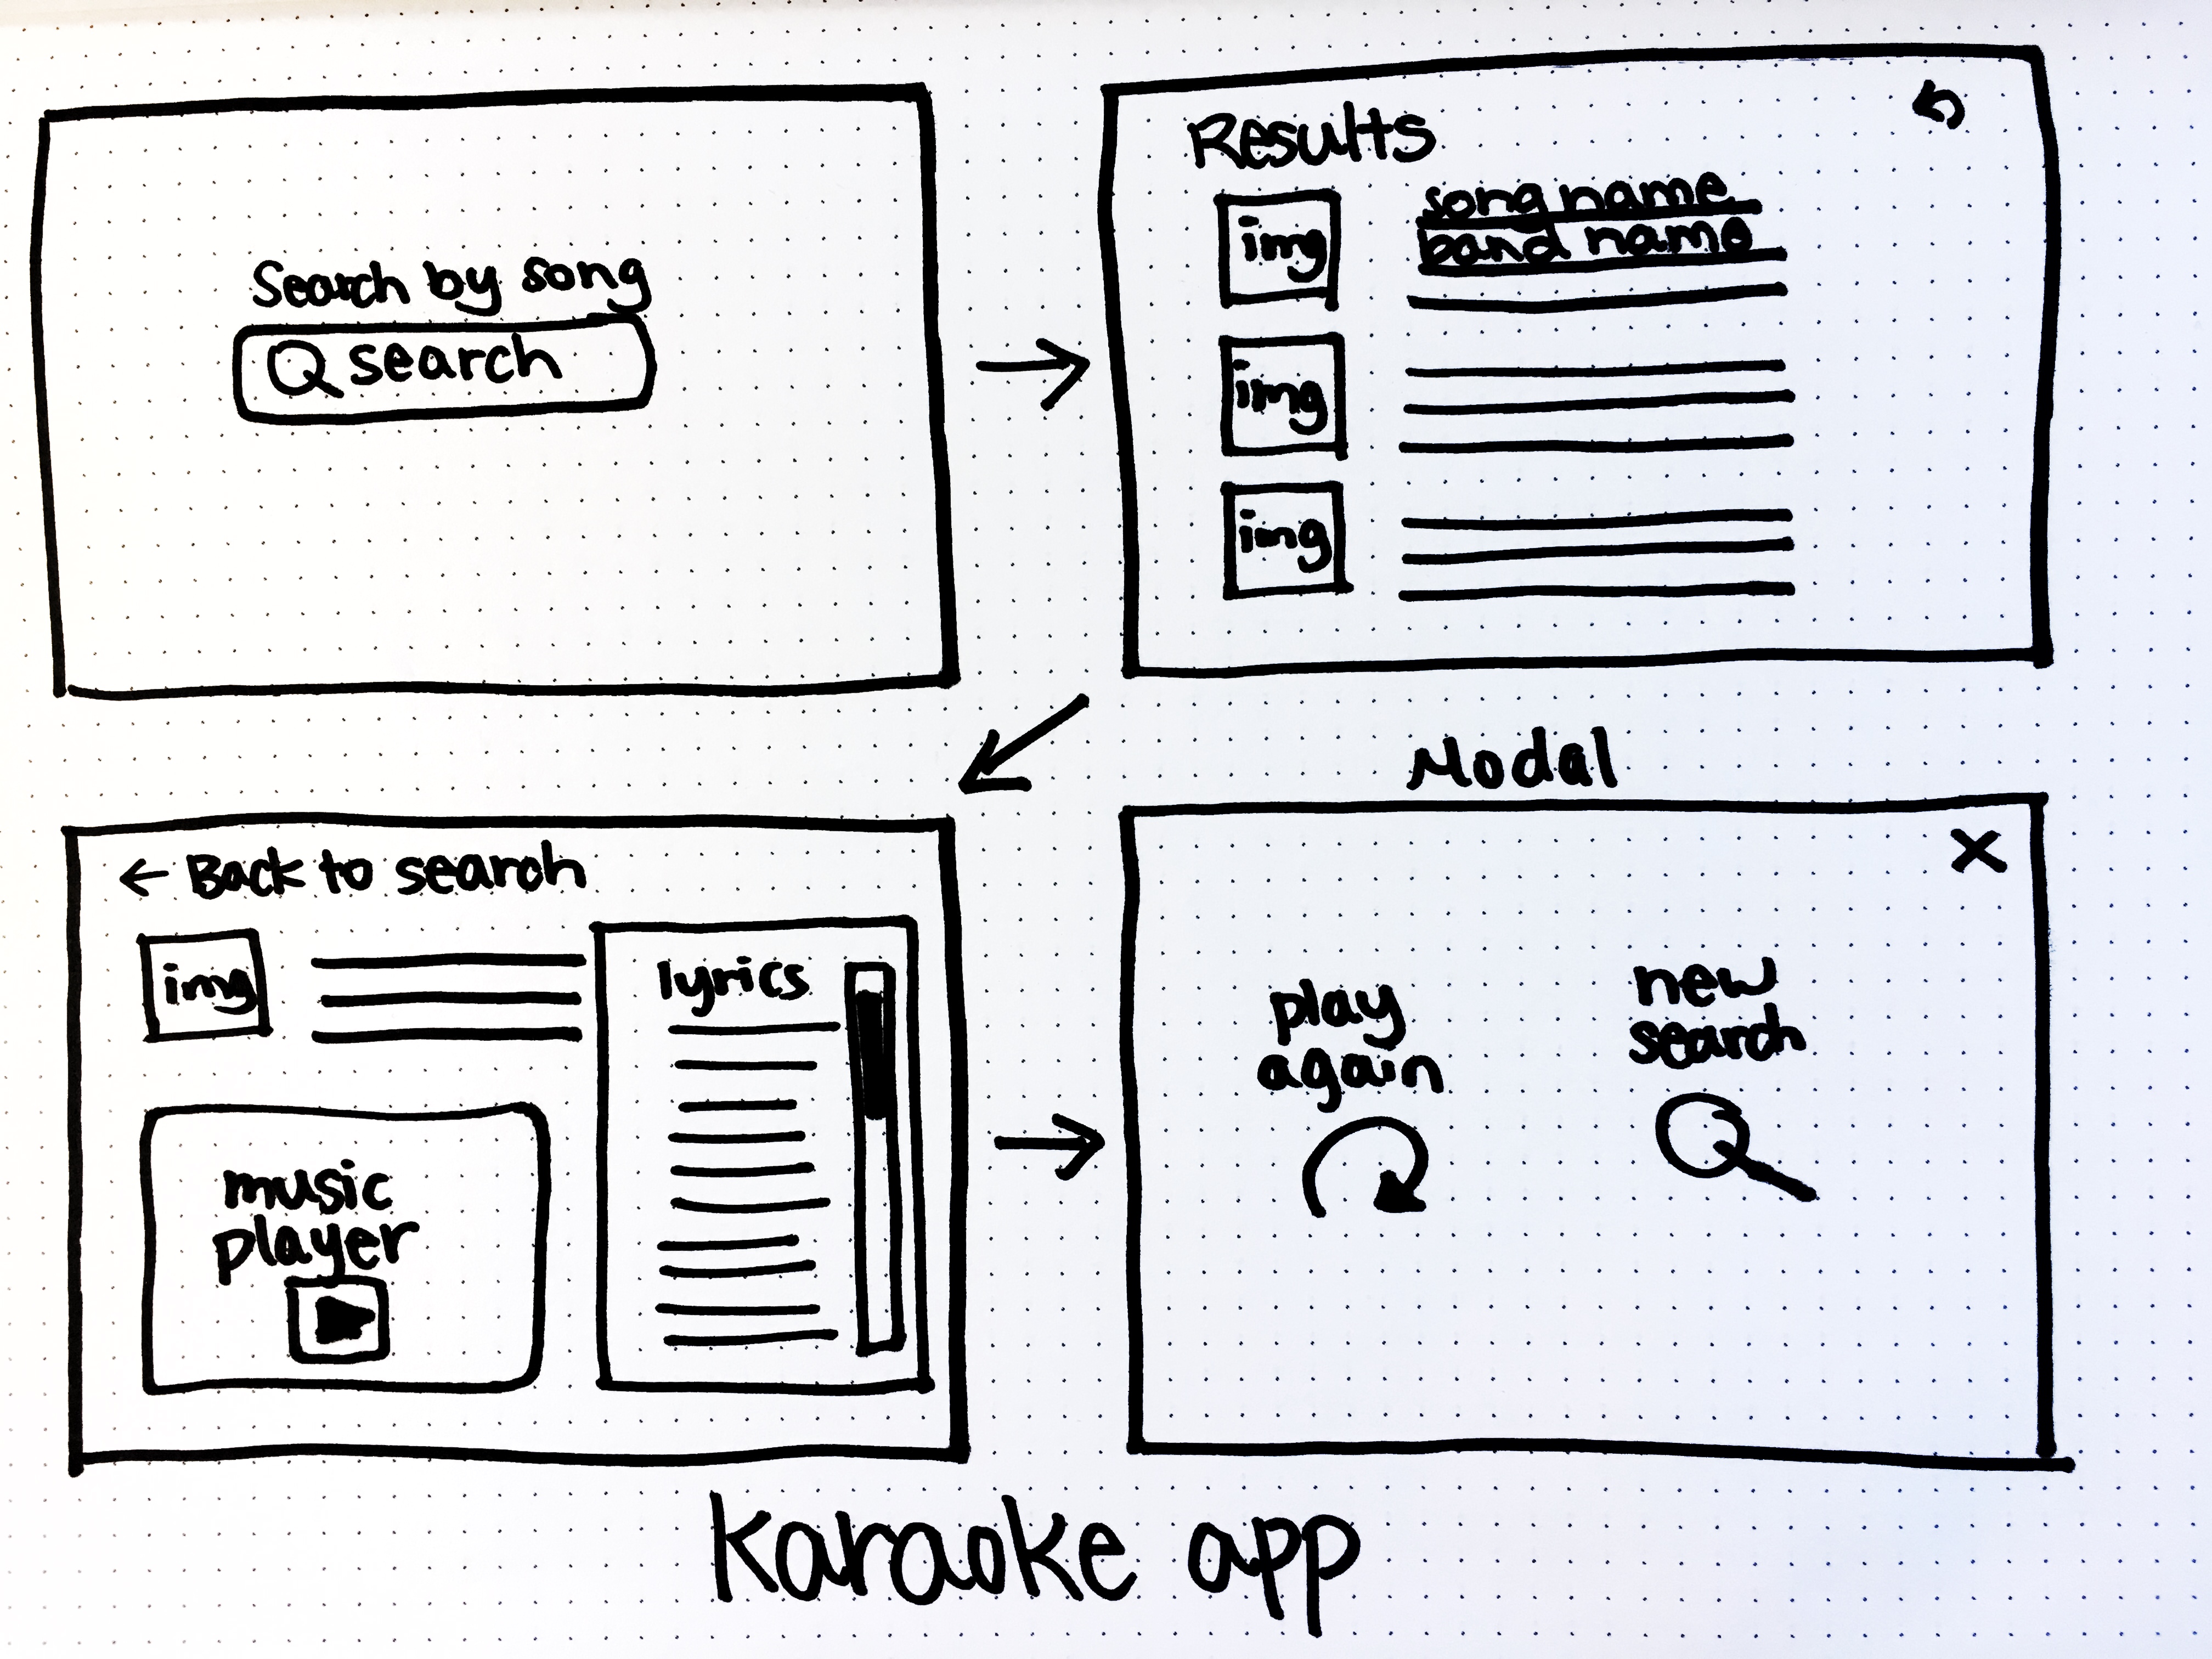 Search by song
search
Results
img
song name
band name
img
img
← Back to search
img
lyrics
music
player
Modal
X
play
again
new
search
Karaoke app